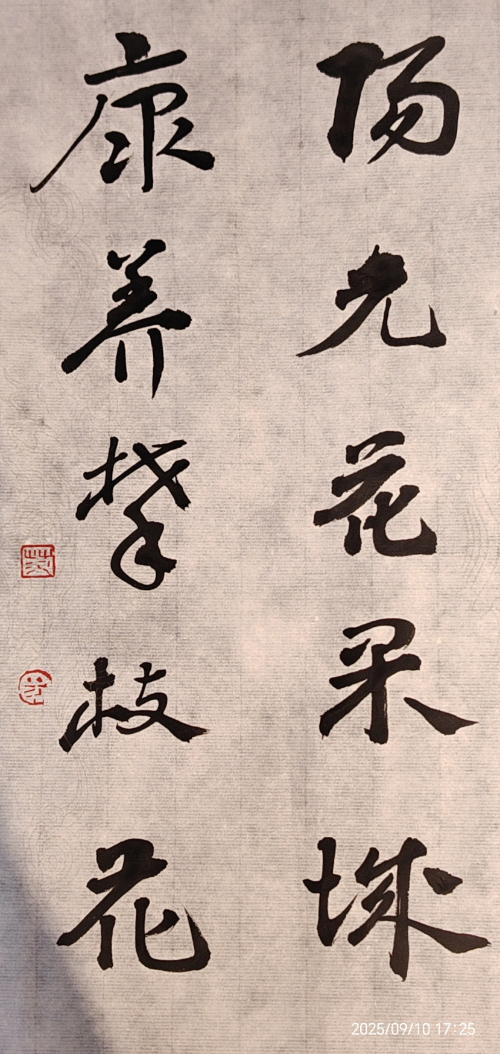 阳光花朵城
康养攀枝花
2025/09/10 17:25